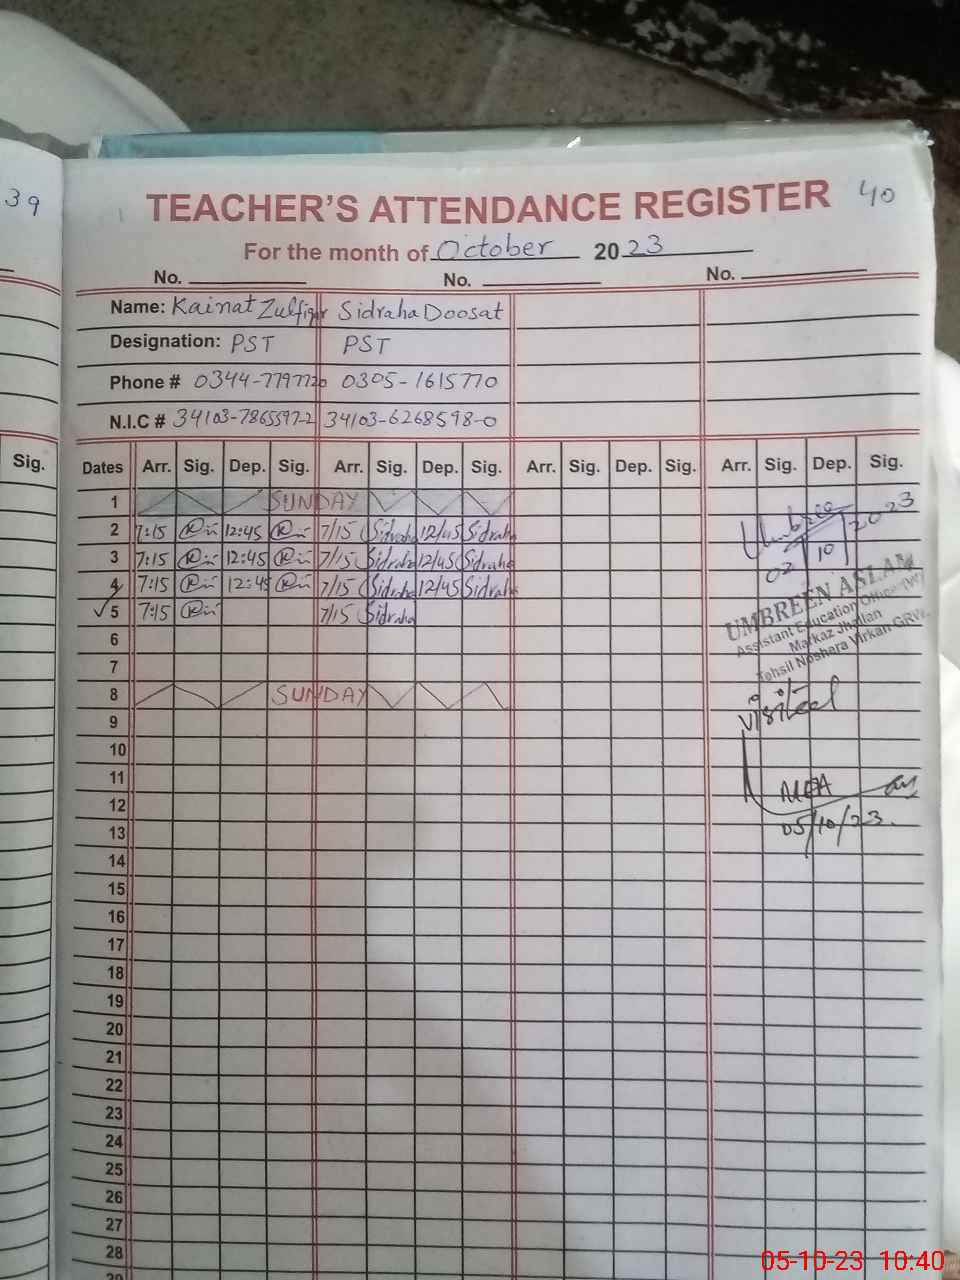 39
TEACHER'S ATTENDANCE REGISTER 40
For the month of October 2023
No. No. No.
Name: Kainat Zulfiqar Sidraha Doosat
Designation: PST PST
Phone # 0344-7797720 0305-1615770
N.I.C # 34103-7865597-2 34103-6268598-0
Sig. Dates Arr. Sig. Dep. Sig. Arr. Sig. Dep. Sig. Arr. Sig. Dep. Sig. Arr. Sig. Dep. Sig.
1 SUNDAY
2 7:15 12:45 7/15 Sidraha 12/45 Sidraha
3 7:15 12:45 7/15 Sidraha 12/45 Sidraha
4 7:15 12:45 7/15 Sidraha 12/45 Sidraha
5 7:15 7/15 Sidraha
6
7
8 SUNDAY
9
10
11
12
13
14
15
16
17
18
19
20
21
22
23
24
25
26
27
28
29
02/10/2023
UMBREEN ASLAM
Assistant Education Officer (W)
Markaz Jhallan
Tehsil Noshera Virkan GRW.
Visited
MEA
05/10/23.
05-10-23 10:40